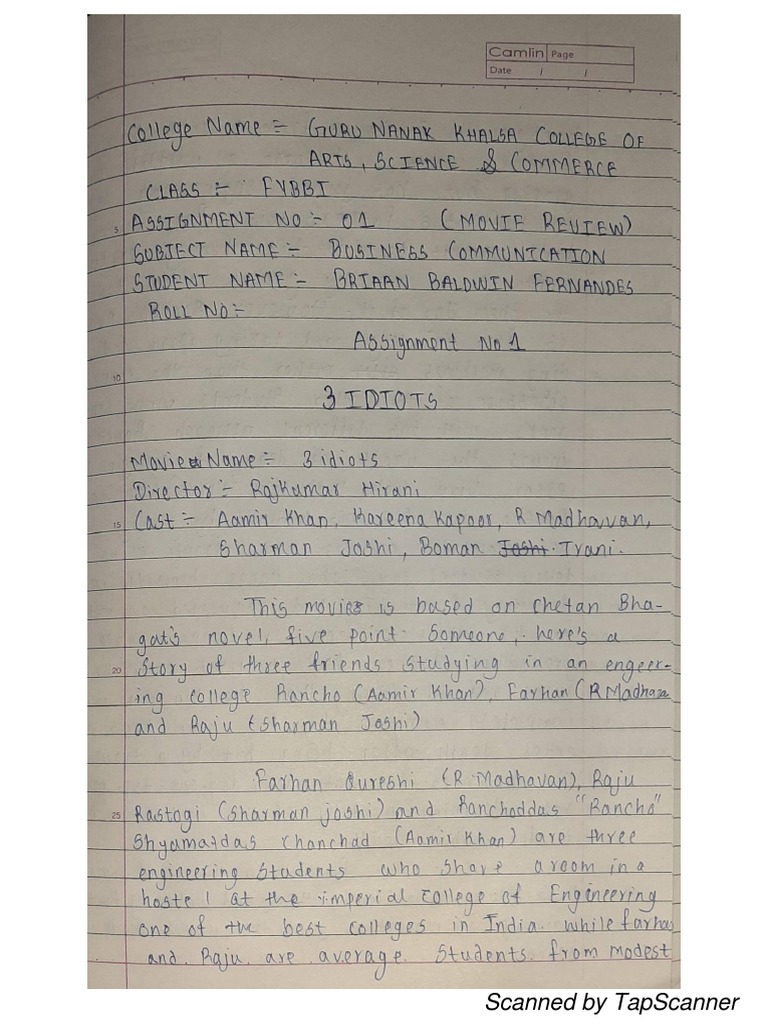 Camlin Page
Date / /
College Name :- GURU NANAK KHALSA COLLEGE OF
ARTS, SCIENCE & COMMERCE
CLASS :- FYBBI
5 ASSIGNMENT NO :- 01 (MOVIE REVIEW)
SUBJECT NAME :- BUSINESS COMMUNICATION
STUDENT NAME :- BRIAAN BALDWIN FERNANDES
ROLL NO :-
Assignment No 1
10
3 IDIOTS
Movie Name :- 3 idiots
Director :- Rajkumar Hirani
15 Cast :- Aamir Khan, Kareena Kapoor, R Madhavan,
Sharman Joshi, Boman Joshi. Irani.
This movies is based on Chetan Bha-
gat's novel, five point someone, here's a
20 Story of three friends studying in an engeer-
ing college Rancho (Aamir Khan), Farhan (R Madhava
and Raju (Sharman Joshi)
Farhan Qureshi (R Madhavan), Raju
25 Rastogi (Sharman joshi) and Ranchoddas "Rancho"
Shyamaldas Chanchad (Aamir Khan) are three
engineering students who share a room in a
hostel at the imperial college of Engineering
one of the best colleges in India. while farhan
and Raju are average students from modest
Scanned by TapScanner